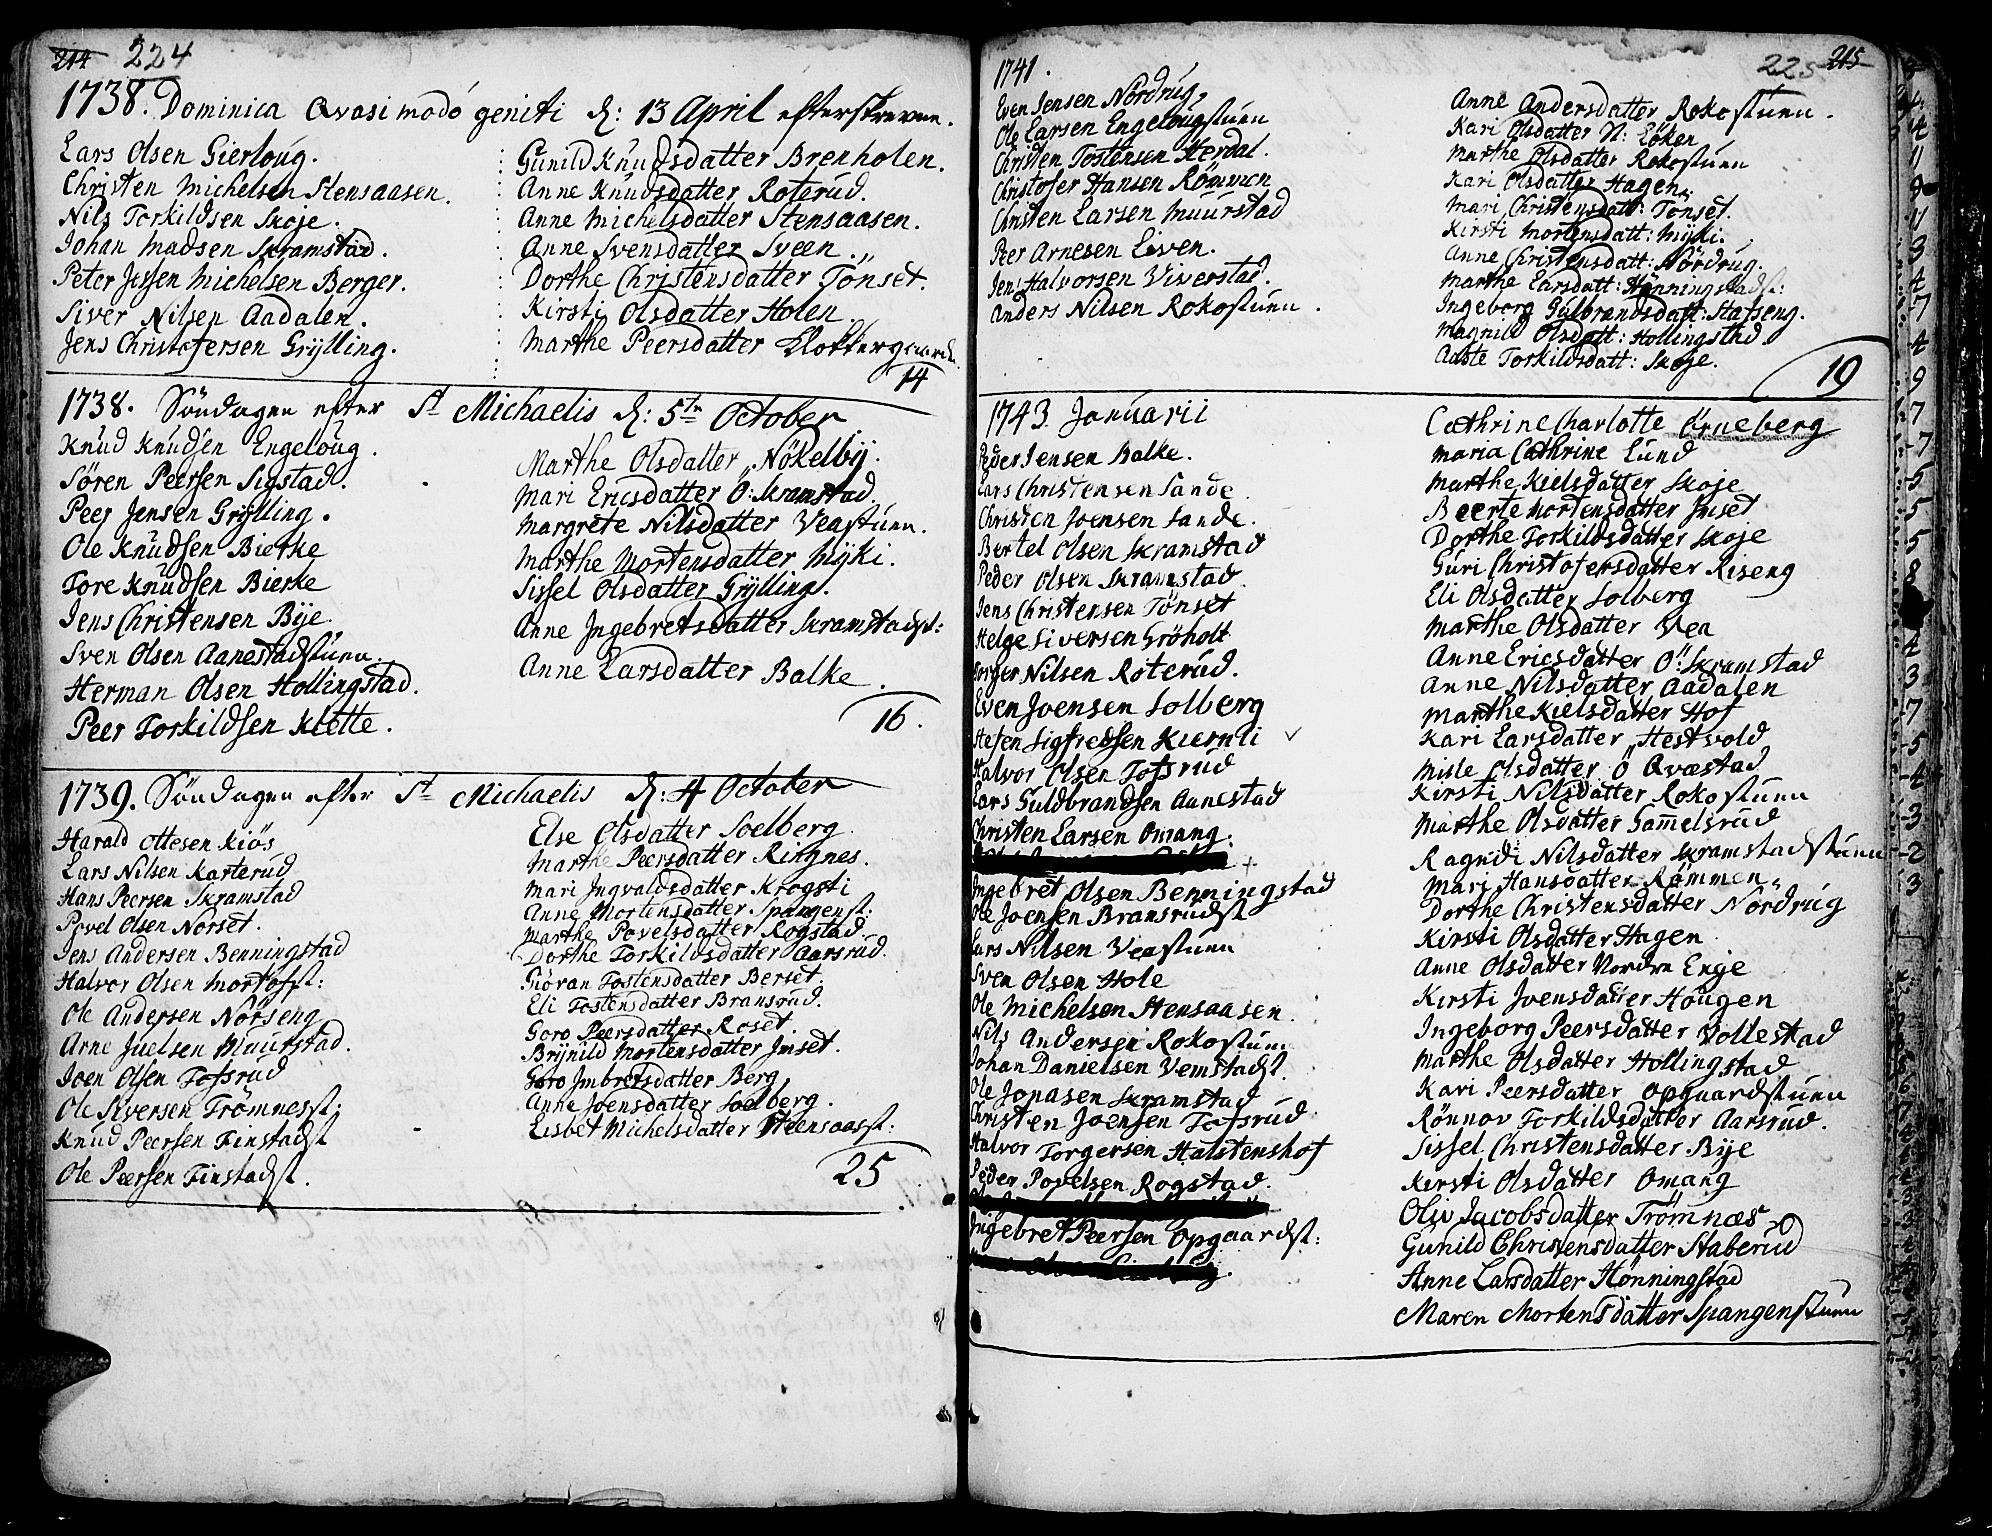 214 224
1738. Dominica Qvasimodo geniti d: 13 April efterskrevne.
Lars Olsen Gierloug.
Christen Michelsen Stensaasen.
Nils Torkildsen Skoje.
Johan Madsen Skramstad.
Peter Jessen Michelsen Berger.
Siver Nilsen Aadalen.
Jens Christofersen Grÿlling.
Gunild Knudsdatter Brenholen.
Anne Knudsdatter Roterud.
Anne Michelsdatter Stensaasen.
Anne Svensdatter Sveen.
Dorthe Christensdatter Tönset.
Kirsti Olsdatter Holen.
Marthe Peersdatter Klokkergaard
14
1738. Söndagen efter St Michaelis d: 5te October
Knud Knudsen Engeloug.
Sören Peersen Sigstad.
Peer Jensen Grÿlling.
Ole Knudsen Bierke
Tore Knudsen Bierke
Jens Christensen Bÿe.
Sven Olsen Aanestadstuen.
Herman Olsen Hollingstad.
Peer Torkildsen Klette.
Marthe Olsdatter Nökelbÿ.
Mari Ericsdatter Ö: Skramstad.
Margrete Nilsdatter Veastuen.
Marthe Mortensdatter Mÿki.
Sissel Olsdatter Grÿlling.
Anne Ingebretsdatter Skramstadst:
Anne Larsdatter Balke.
16.
1739. Söndagen efter St Michaelis d: 4 October
Harald Ottesen Kiös
Lars Nilsen Karterud
Hans Peersen Skramstad
Povel Olsen Norset.
Jens Andersen Benningstad
Halvor Olsen Mortofst:
Ole Andersen Nörseng
Arne Juelsen Muurstad.
Joen Olsen Tossrud
Ole Siversen Trömnesst:
Knud Peersen Finstadst
Ole Peersen Finstadst.
Else Olsdatter Soelberg.
Marthe Peersdatter Ringnes.
Mari Ingvaldsdatter Krogsti
Anne Mortensdatter Spangenst:
Marthe Povelsdatter Rogstad.
Dorthe Torkildsdatter Aarsrud.
Giöran Tostensdatter Berset.
Eli Tostensdatter Bransrud.
Goro Peersdatter Roset.
Brÿnild Mortensdatter Imset.
Goro Imbretsdatter Berg
Anne Joensdatter Soelberg.
Lisbet Michelsdatter Steensaasst:
25
225 215
1741.
Even Jensen Nördrug
Ole Larsen Engelougstuen
Christen Tostensen Herdal.
Christofer Hansen Römmen
Larsen Muurstad
Peer Arnesen Liven.
Jens Halvorsen Viverstad.
Anders Nilsen Rokostuen.
Anne Andersdatter Rokostuen.
Kari Olsdatter N: Löken
Marthe Olsdatter Rokostuen
Kari Olsdatter Hagen.
Mari Christensdatt: Tönset.
Kirsti Mortensdatt: Mÿki.
Anne Christensdatt: Nördrug.
Marthe Larsdatt: Hönningstadst:
Ingeborg Gulbrandsdatt: Stafseng.
Magnild Olsdatt: Hollingstad.
Aaste Torkildsdatt: Skoje.
19
1743. Januarii
Peder Jensen Balke.
Lars Christensen Sande.
Christen Joensen Sande.
Bertel Olsen Skramstad
Peder Olsen Skramstad.
Jens Christensen Tönset
Helge Siversen Gröholt
Torger Nilsen Roterud.
Even Joensen Solberg
Stefen Sigfredsen Kiernli
Halvor Olsen Tossrud
Lars Guldbrandsen Aanestad
Christen Larsen Omang.
Ingebret Olsen Benningstad
Ole Joensen Bransrudst
Lars Nilsen Veastuen
Sven Olsen Hole
Ole Michelsen Stensaasen.
Nils Andersen Rokostuen
Johan Danielsen Vemstadst.
Ole Jonasen Skramstad
Christen Joensen Tossrud
Halvor Torgersen Halstenshof
Peder Povelsen Rogstad.
Ingebret Peersen Opgaardst:
Cathrine Charlotte Örneberg
Maria Cathrine Lund
Marthe Kielsdatter Skoje
Beerte Mortensdatter Imset
Dorthe Torkildsdatter Skoje
Guri Christofersdatter Riseng
Eli Olsdatter Solberg
Marthe Olsdatter Vea
Anne Ericsdatter Ö: Skramstad
Anne Nilsdatter Aadalen
Marthe Kielsdatter Hof
Kari Larsdatter Hestvold
Mille Olsdatter Ö Qvæstad
Kirsti Nilsdatter Rokostuen
Marthe Olsdatter Gammelsrud
Ragndi Nilsdatter Skramstadstuen
Mari Hansdatter Römmen
Dorthe Christensdatter Nördrug
Kirsti Olsdatter Hagen
Anne Olsdatter Nordre Enge
Kirsti Joensdatter Hougen
Ingeborg Peersdatter Vollestad
Marthe Olsdatter Hollingstad
Kari Peersdatter Opgaardstuen
Rönnov Torkildsdatter Aarsrud.
Sissel Christensdatter Bÿe
Kirsti Olsdatter Omang
Oliv Jacobsdatter Trömnæs
Gunild Christensdatter Staberud
Anne Larsdatter Hönningstad
Maren Mortensdatter Spangenstuen